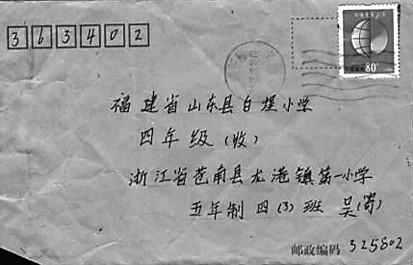 363402
80
福建省山东县白埕小学
四年级(收)
浙江省苍南县龙港镇第一小学
五年制四(3)班 吴(寄)
邮政编码 325802